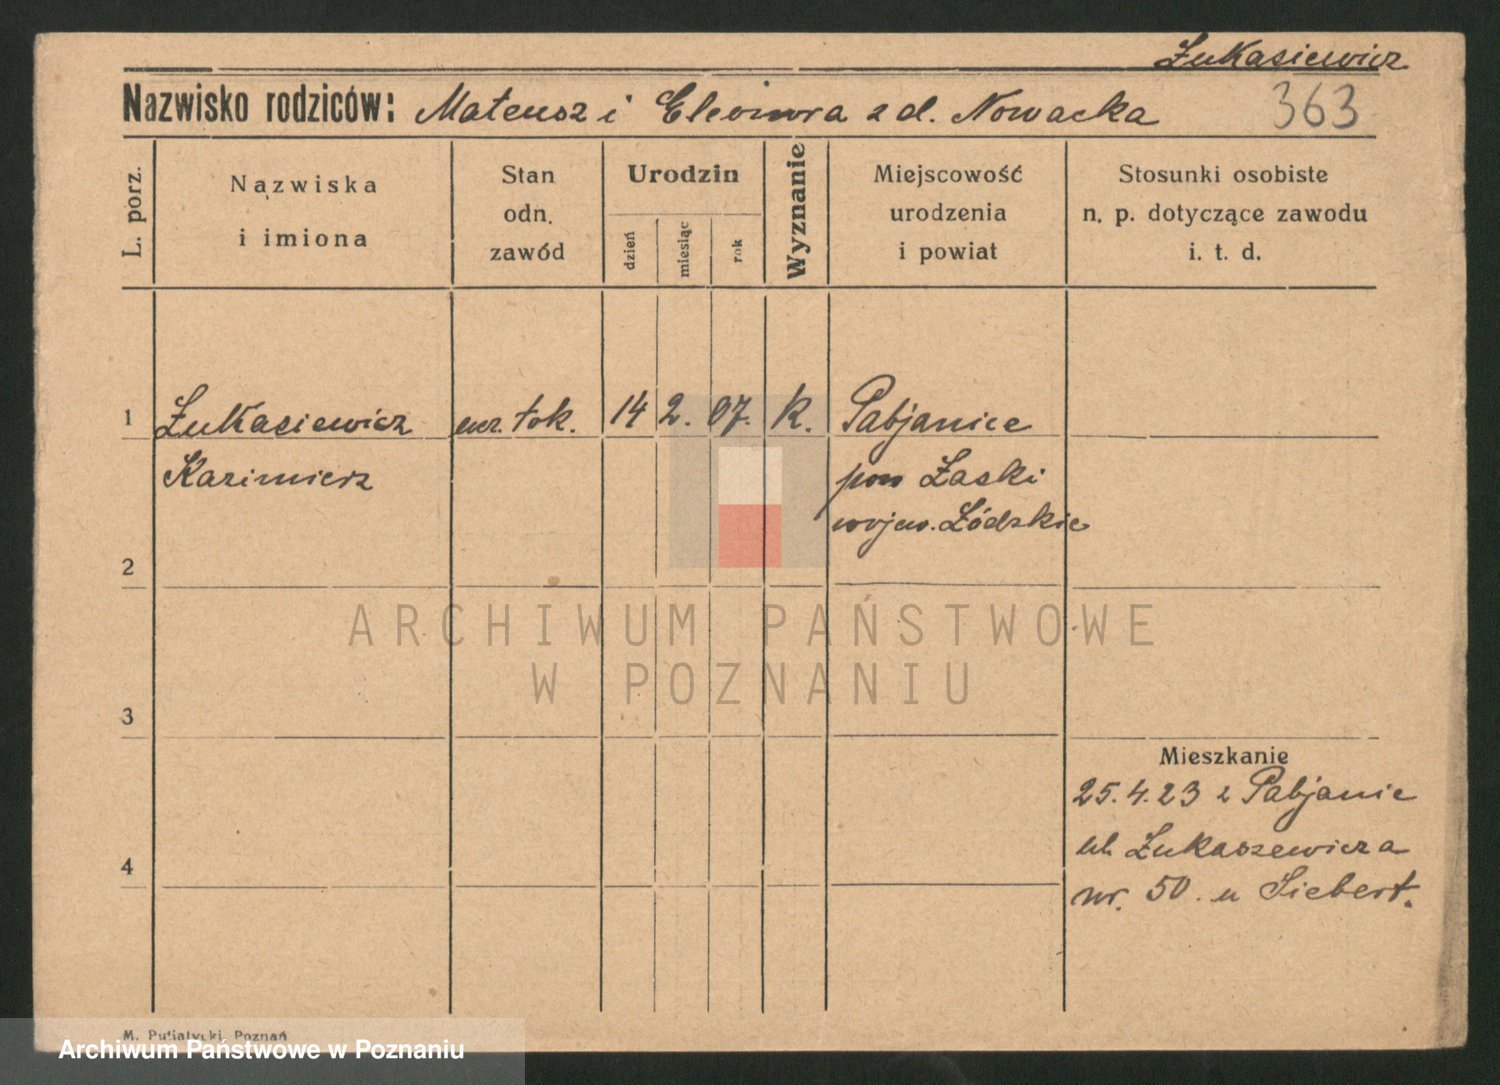 Łukasiewicz
Nazwisko rodziców: Mateusz i Eleonora z d. Nowacka 363
L. porz.
Nazwiska
i imiona
Stan
odn.
zawód
Urodzin
dzień
miesiąc
rok
Wyznanie
Miejscowość
urodzenia
i powiat
Stosunki osobiste
n. p. dotyczące zawodu
i. t. d.
1 Łukasiewicz ucz. tok. 14 2. 07. K. Pabjanice
Kazimierz pow Łaski
wojew. Łódzkie
2
3
4
Mieszkanie
25.4.23 z Pabjanic
ul. Łukaszewicza
nr. 50. u Siebert.
ARCHIWUM PAŃSTWOWE
W POZNANIU
M. Putiatycki, Poznań
Archiwum Państwowe w Poznaniu